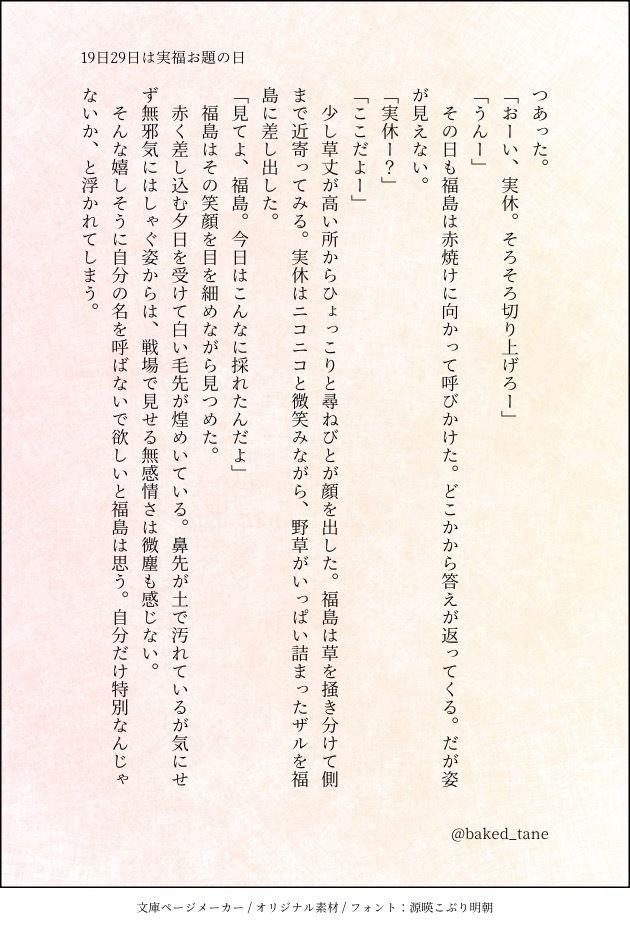 19日29日は実福お題の日
つあった。
「おーい、実休。そろそろ切り上げろー」
「うんー」
　その日も福島は赤焼けに向かって呼びかけた。どこかから答えが返ってくる。だが姿
が見えない。
「実休ー？」
「ここだよー」
　少し草丈が高い所からひょっこりと尋ねびとが顔を出した。福島は草を掻き分けて側
まで近寄ってみる。実休はニコニコと微笑みながら、野草がいっぱい詰まったザルを福
島に差し出した。
「見てよ、福島。今日はこんなに採れたんだよ」
　福島はその笑顔を目を細めながら見つめた。
　赤く差し込む夕日を受けて白い毛先が煌めいている。鼻先が土で汚れているが気にせ
ず無邪気にはしゃぐ姿からは、戦場で見せる無感情さは微塵も感じない。
　そんな嬉しそうに自分の名を呼ばないで欲しいと福島は思う。自分だけ特別なんじゃ
ないか、と浮かれてしまう。
@baked_tane
文庫ページメーカー / オリジナル素材 / フォント：源暎こぶり明朝